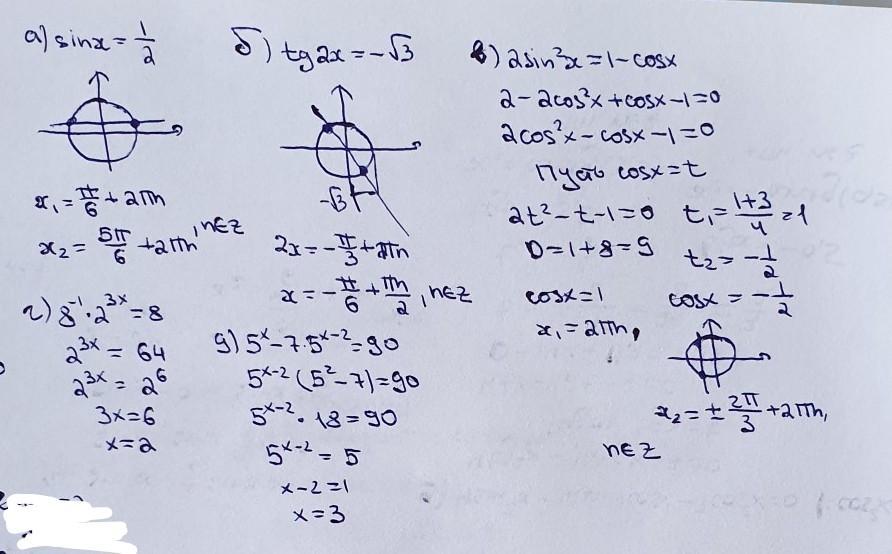 а) sinx = 1/2
x₁ = π/6 + 2πn
x₂ = 5π/6 + 2πn, n∈Z
б) tg2x = -√3
-√3
2x = -π/3 + πn
x = -π/6 + πn/2, n∈Z
в) 2sin²x = 1 - cosx
2 - 2cos²x + cosx - 1 = 0
2cos²x - cosx - 1 = 0
Пусть cosx = t
2t² - t - 1 = 0 t₁ = (1+3)/4 = 1
D = 1 + 8 = 9 t₂ = -1/2
cosx = 1 cosx = -1/2
x₁ = 2πn,
x₂ = ± 2π/3 + 2πn,
n∈Z
г) 8⁻¹ · 2³ˣ = 8
2³ˣ = 64
2³ˣ = 2⁶
3x = 6
x = 2
g) 5ˣ - 7·5ˣ⁻² = 90
5ˣ⁻²(5² - 7) = 90
5ˣ⁻² · 18 = 90
5ˣ⁻² = 5
x - 2 = 1
x = 3